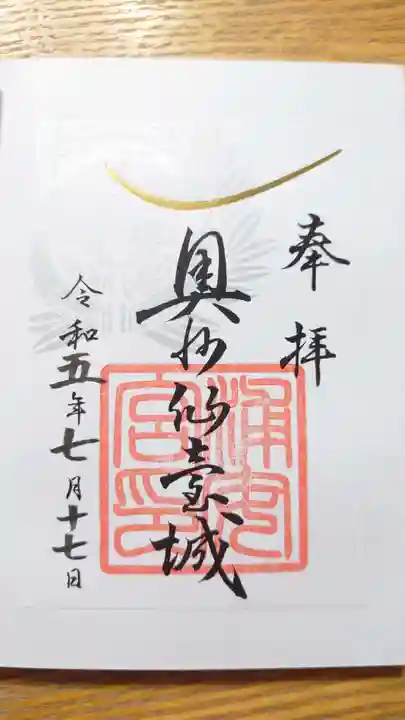 奉拝
奥州仙臺城
浦安
宮印
令和五年七月十七日